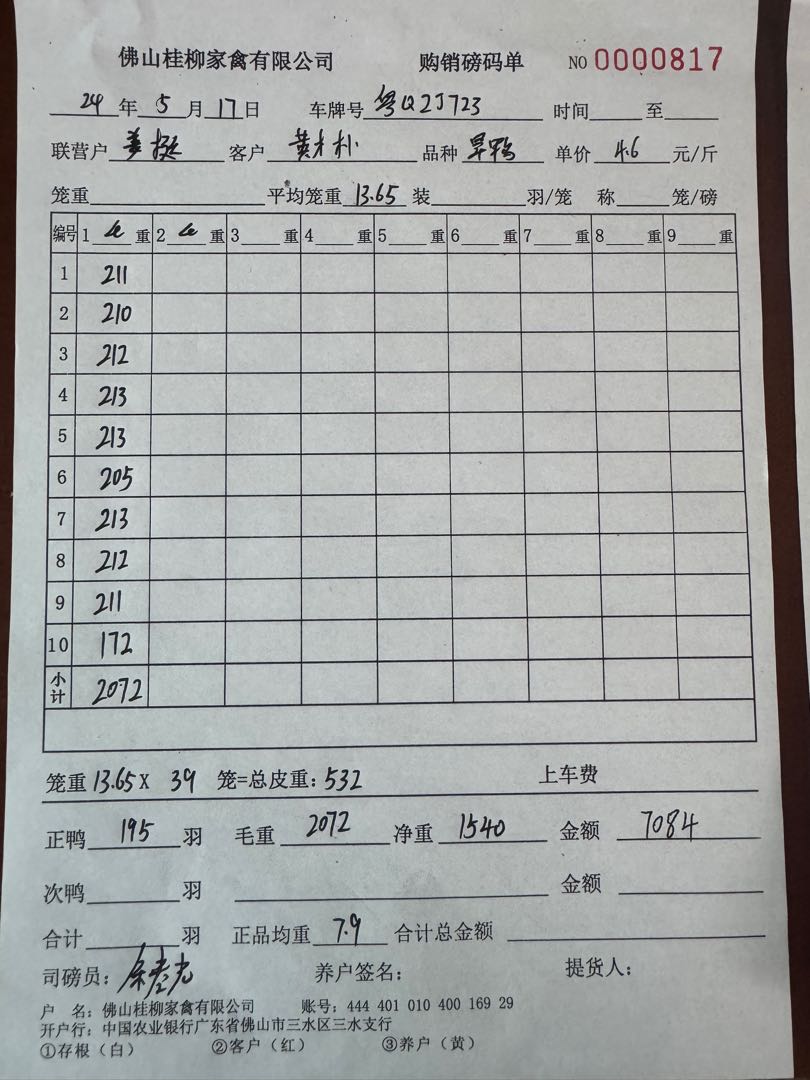 佛山桂柳家禽有限公司 购销磅码单 NO 0000817
24 年 5 月 17 日 车牌号 粤Q2J723 时间 至
联营户 姜挺 客户 黄木朴 品种 旱鸭 单价 4.6 元/斤
笼重 平均笼重 13.65 装 羽/笼 称 笼/磅
编号 1 4 重 2 4 重 3 重 4 重 5 重 6 重 7 重 8 重 9 重
1 211
2 210
3 212
4 213
5 213
6 205
7 213
8 212
9 211
10 172
小计 2072
笼重 13.65 X 39 笼=总皮重: 532 上车费
正鸭 195 羽 毛重 2072 净重 1540 金额 7084
次鸭 羽 金额
合计 羽 正品均重 7.9 合计总金额
司磅员: 养户签名: 提货人:
户 名: 佛山桂柳家禽有限公司 账号: 444 401 010 400 169 29
开户行: 中国农业银行广东省佛山市三水区三水支行
①存根(白) ②客户(红) ③养户(黄)